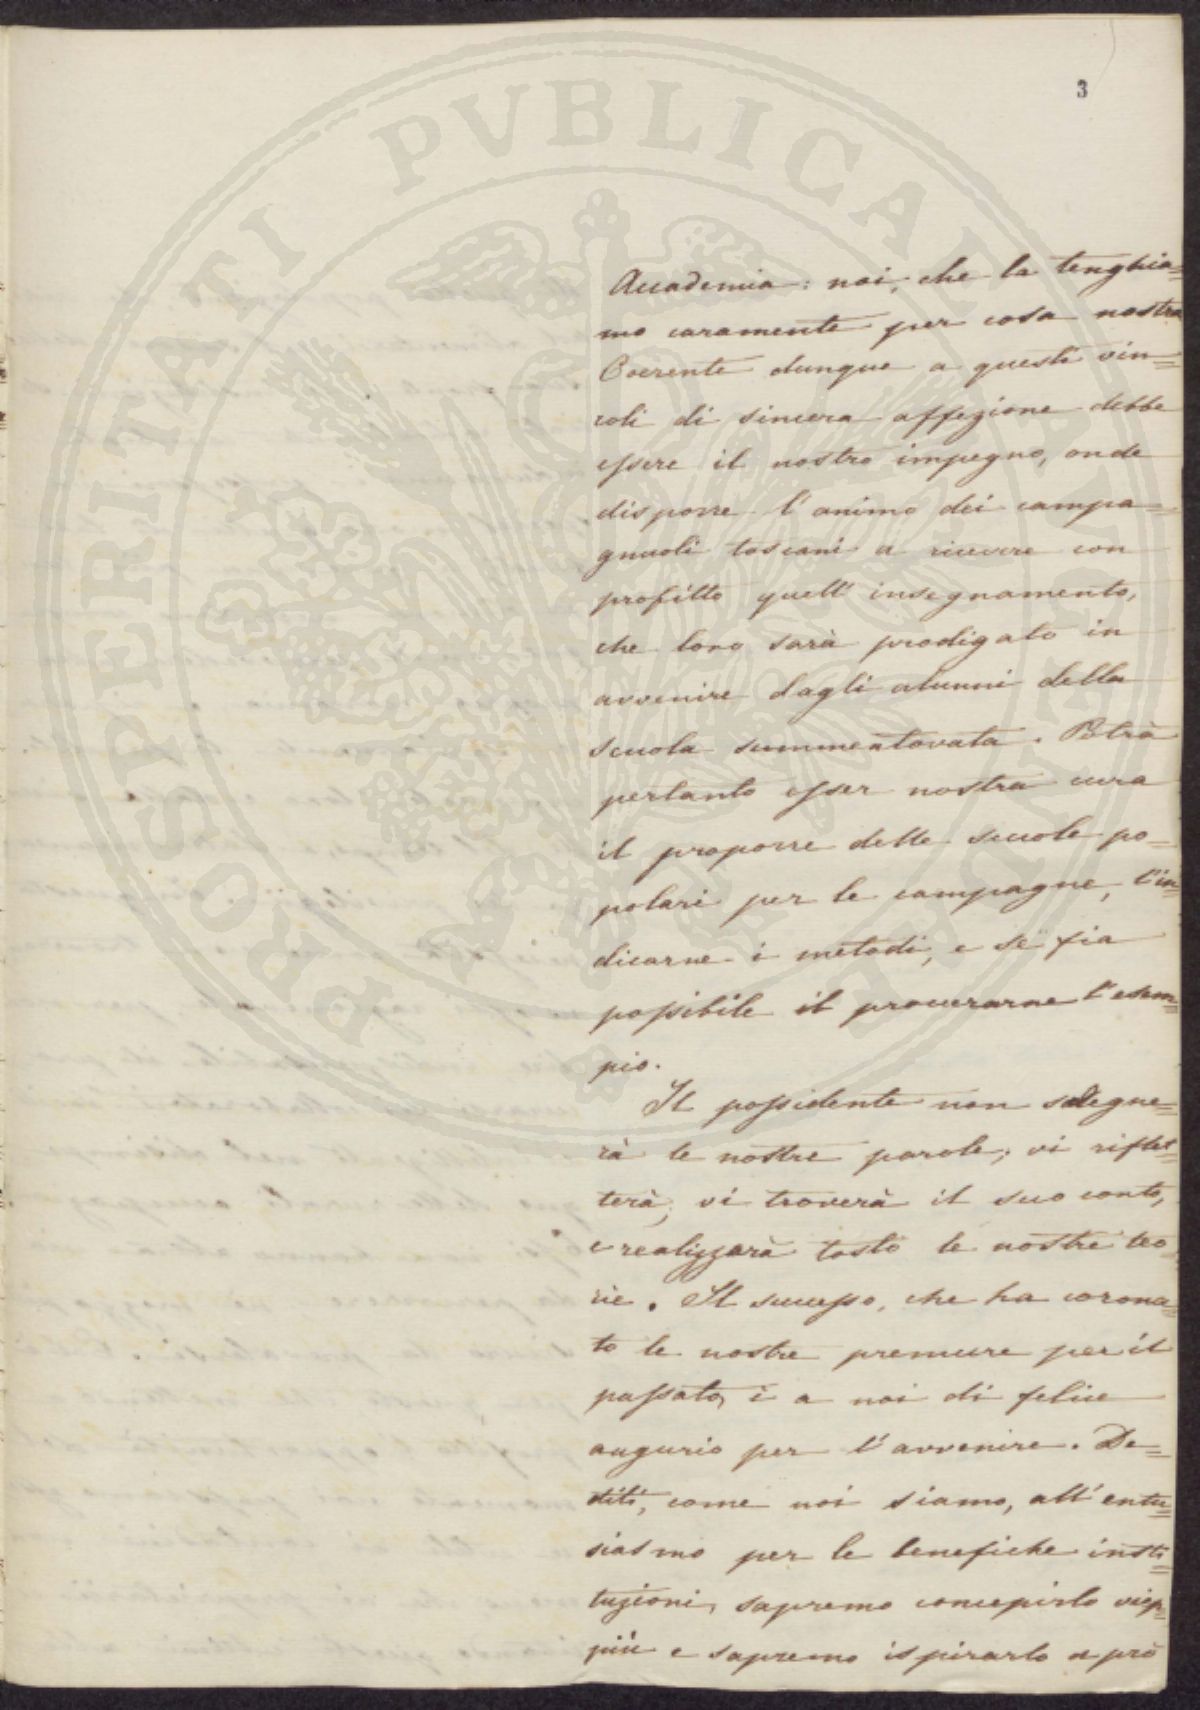 PROSPERITATI PVBLICAE AVGENDAE
3
Accademia: noi, che la tenghia=
mo caramente per cosa nostra
Coerente dunque a questi vin=
coli di sincera affezione debbe
essere il nostro impegno, onde
disporre l'animo dei campa=
gnuoli toscani a ricevere con
profitto quell'insegnamento,
che loro sarà prodigato in
avvenire dagli alunni della
scuola summentovata. Potrà
pertanto esser nostra cura
il proporre delle scuole po=
polari per le campagne, l'in=
dicarne i metodi, e se fia
possibile il procurarne l'esem=
pio.
Il possidente non sdegne=
rà le nostre parole; vi riflet=
terà, vi troverà il suo conto,
e realizzarà tosto le nostre teo=
rie. Il successo, che ha corona=
to le nostre premure per il
passato, è a noi di felice
augurio per l'avvenire. De=
diti, come noi siamo, all'entu=
siasmo per le benefiche insti=
tuzioni, sapremo concepirlo viep=
più e sapremo ispirarlo a prò